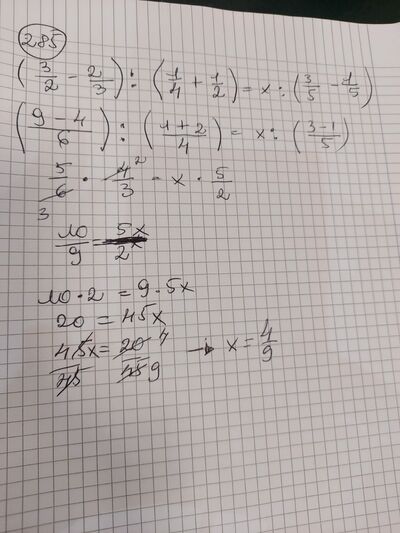 285
(3/2 - 2/3) : (1/4 + 1/2) = x : (3/5 - 1/5)
(9-4/6) : (1+2/4) = x : (3-1/5)
5/6 3 · 4/3 2 = x · 5/2
10/9 = 5x/2
10·2 = 9·5x
20 = 45x
45x/45 = 20/45 4 9 → x = 4/9